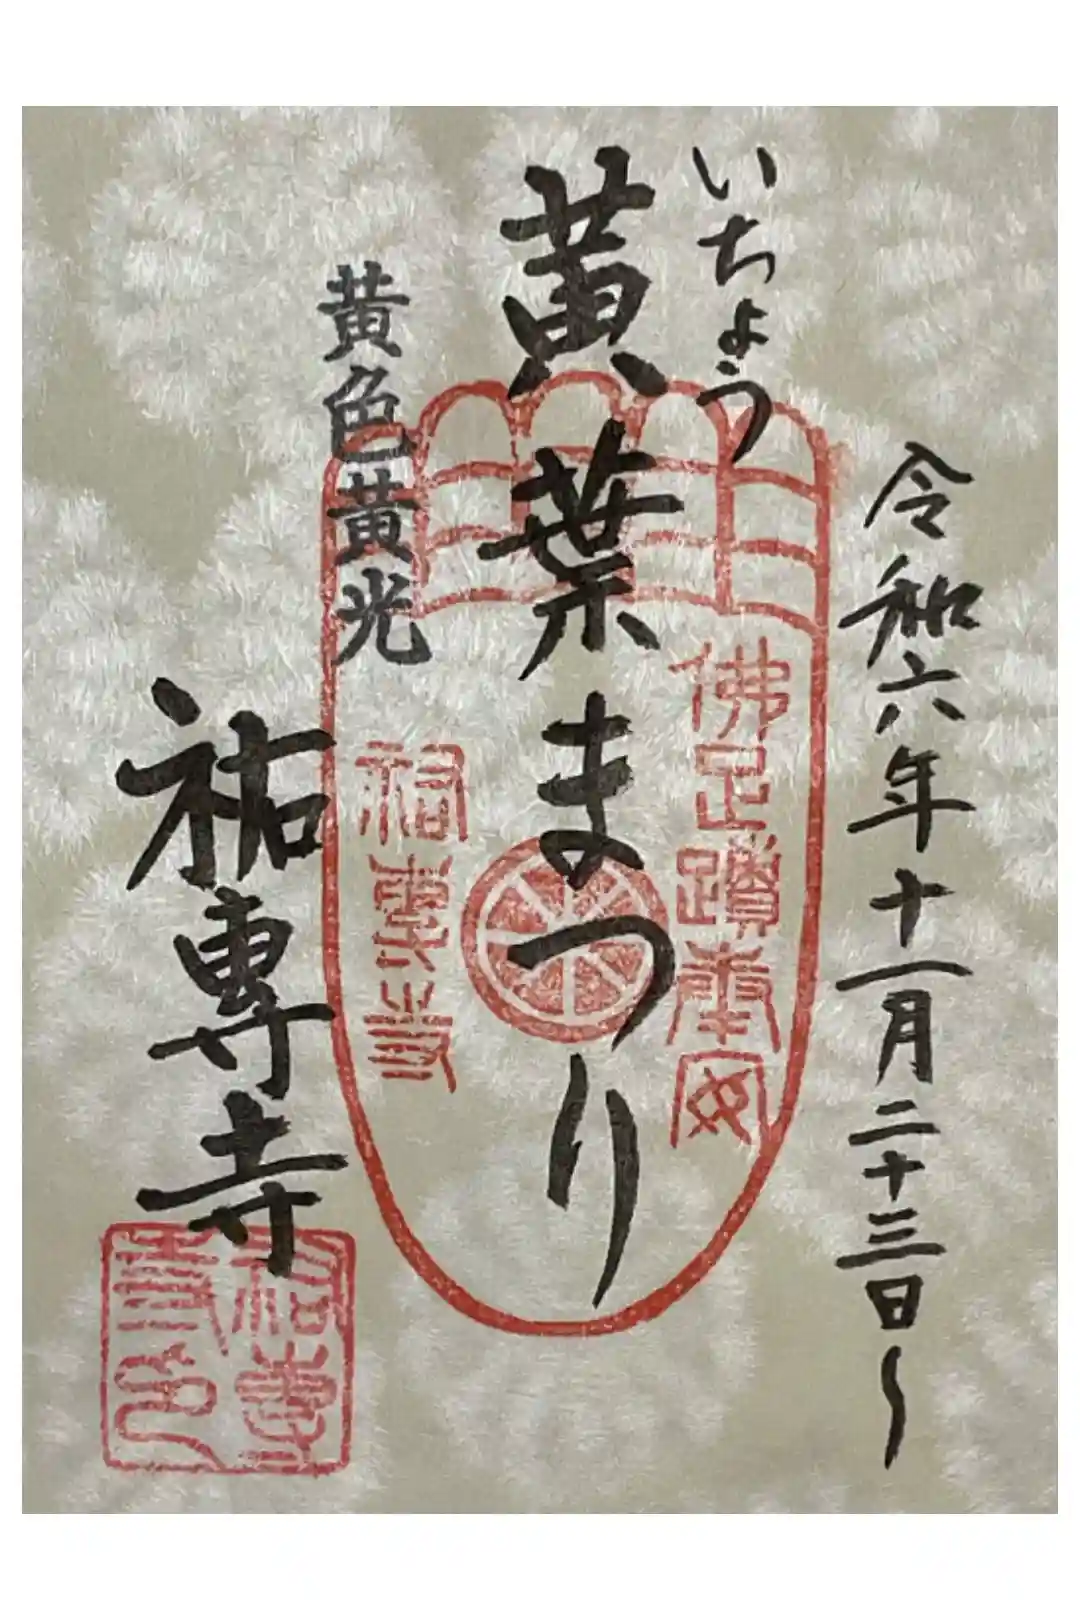 令和六年十一月二十三日〜
いちょう
黄葉まつり
黄色黄光
祐専寺
佛足蹟奉安
祐専寺
祐専寺印